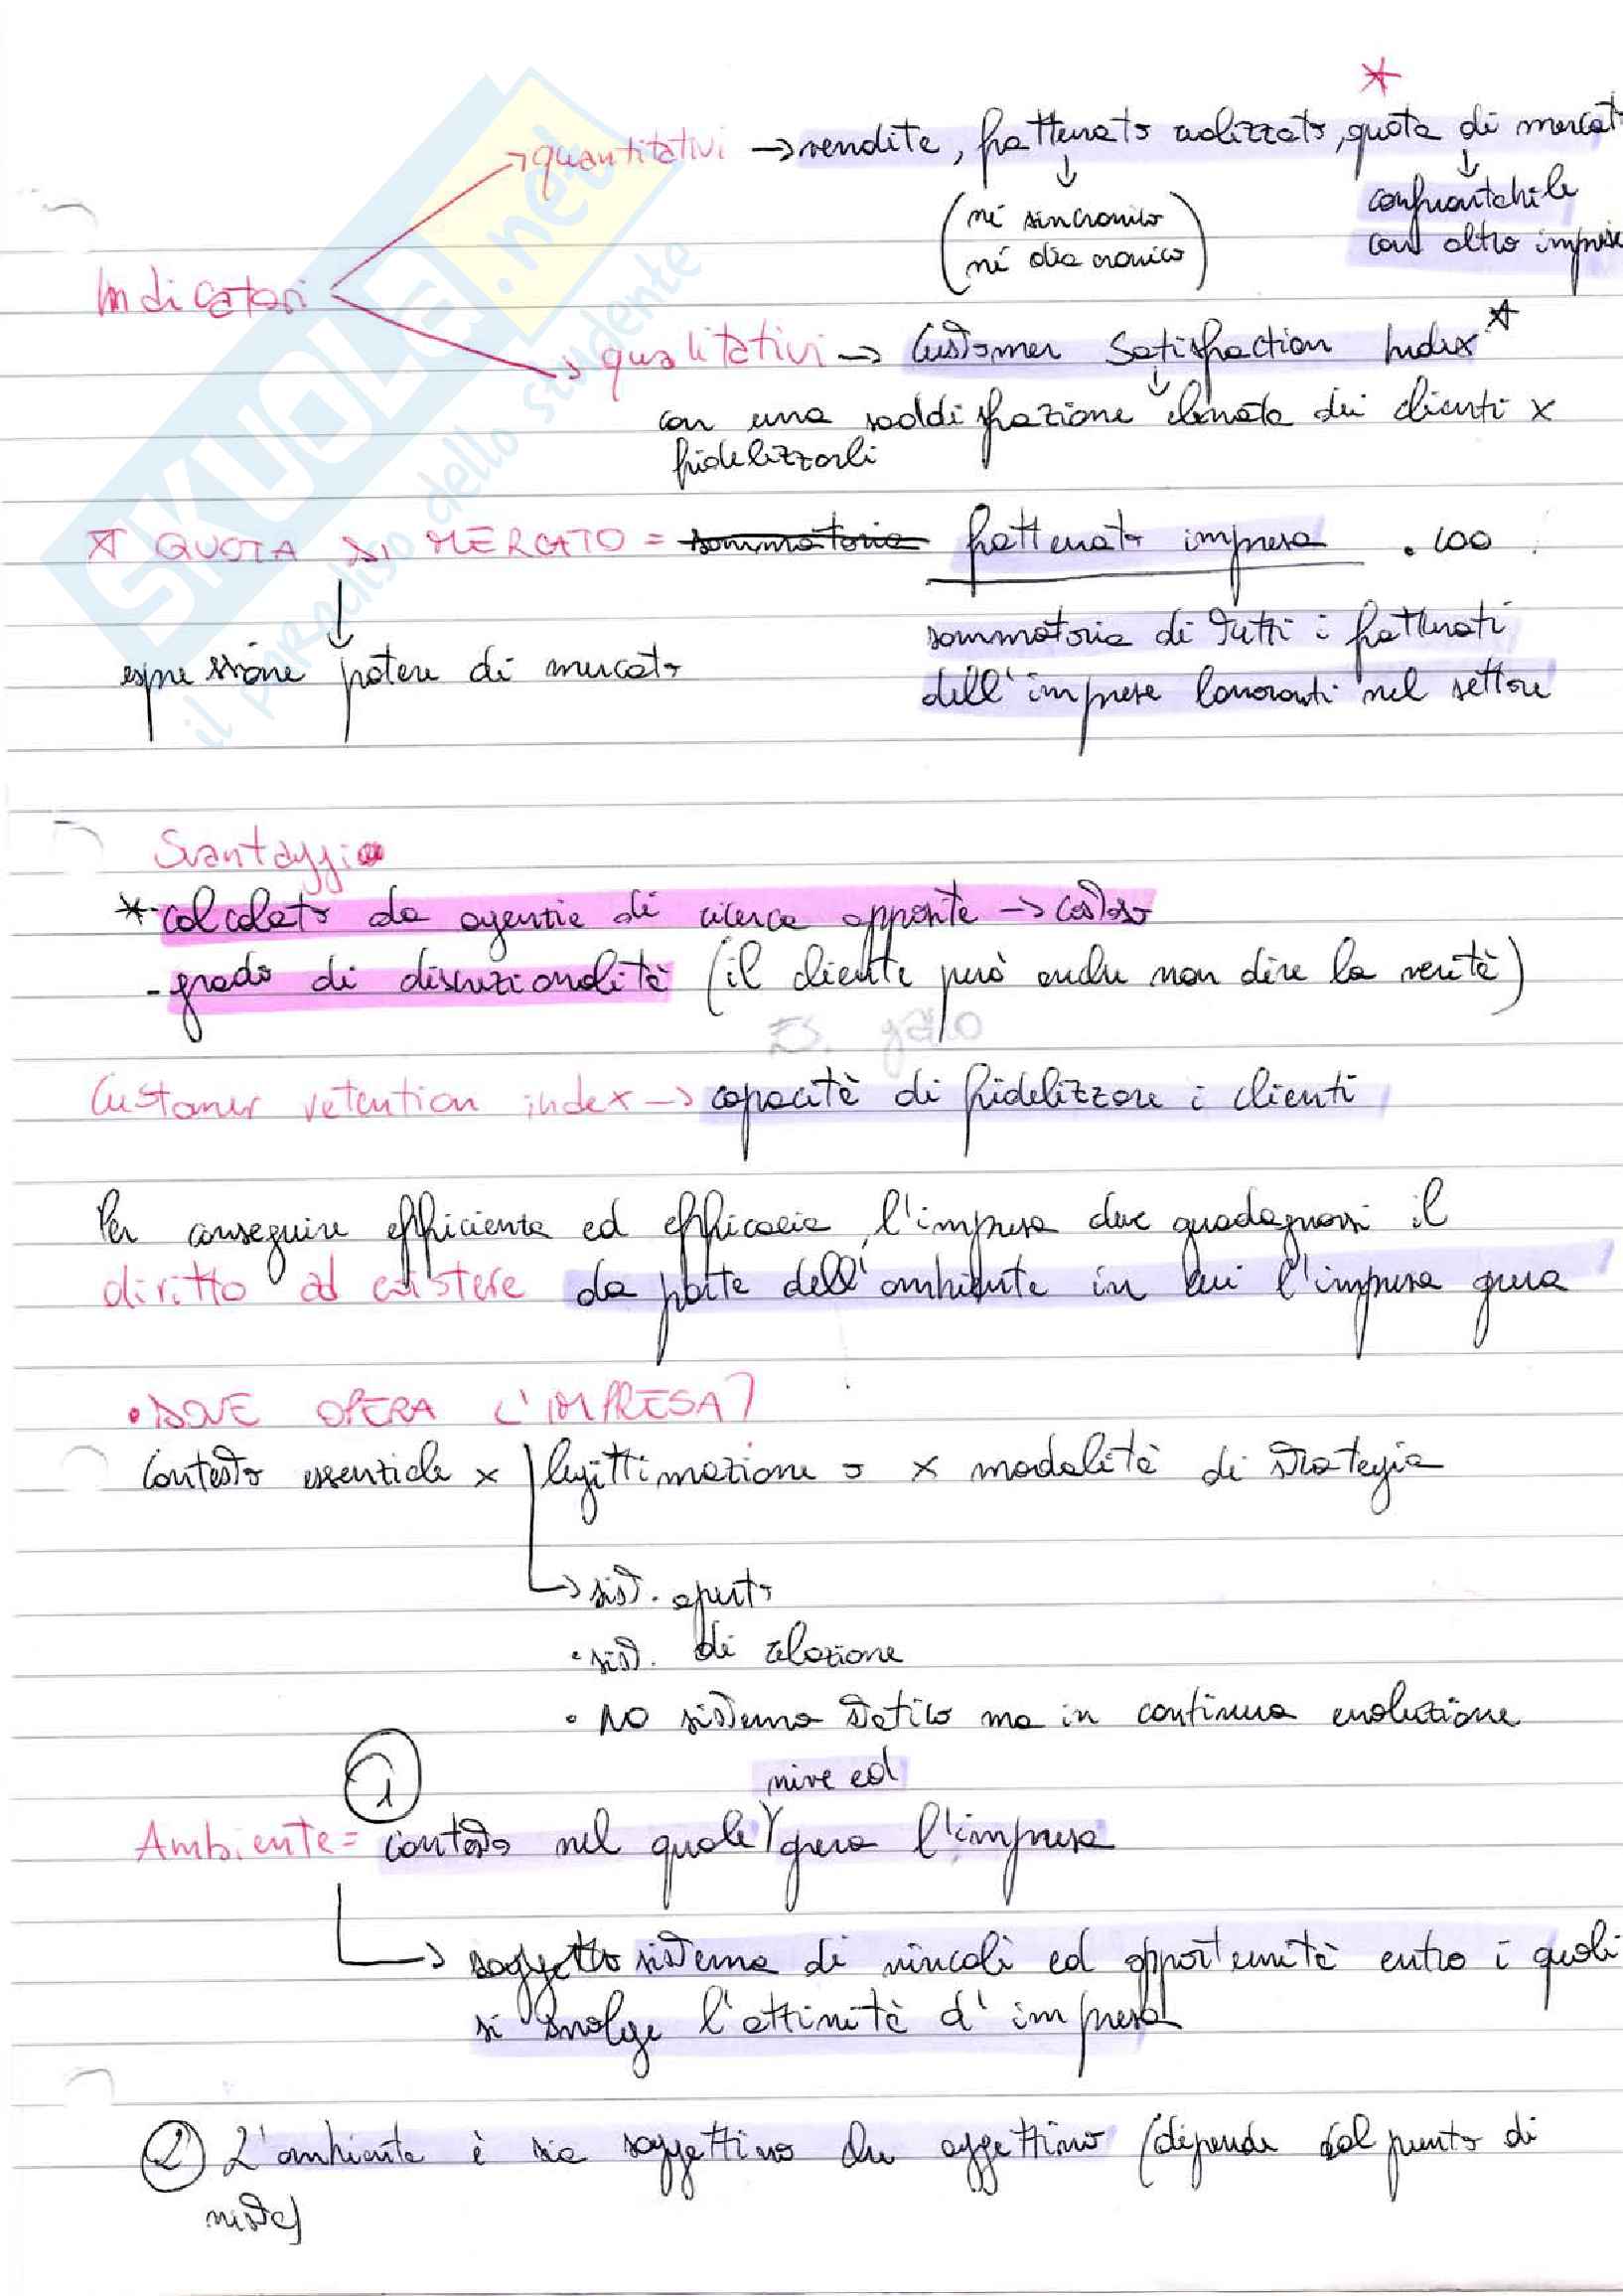 *
quantitativi → vendite, fatturato realizzato, quota di mercat
↓ ↓
(né sincronico
né diacronico)
confrontabile
con altre imprese
Indicatori
qualitativi → Customer Satisfaction Index *
↓
con una soddisfazione elevata dei clienti x
fidelizzarli
* QUOTA DI MERCATO = sommatoria fatturato impresa . 100
sommatoria di tutti i fatturati
dell'imprese lavoranti nel settore
↓
espressione potere di mercato
Svantaggi
* - calcolato da agenzie di ricerca apposite → costoso
- grado di discrezionalità (il cliente può anche non dire la verità)
Es.
Customer retention index → capacità di fidelizzare i clienti
Per conseguire efficienza ed efficacia, l'impresa deve guadagnarsi il
diritto ad esistere da parte dell'ambiente in cui l'impresa opera
• DOVE OPERA L'IMPRESA?
Contesto essenziale x legittimazione o x modalità di strategia
→ sist. aperto
• sist. di relazione
• NO sistema statico ma in continua evoluzione
1
vive ed
Ambiente = contesto nel quale opera l'impresa
→ soggetto sistema di vincoli ed opportunità entro i quali
si svolge l'attività d'impresa
2 L'ambiente è sia soggettivo che oggettivo (dipende dal punto di
vista)
SKUOLA.net
il paradiso dello studente